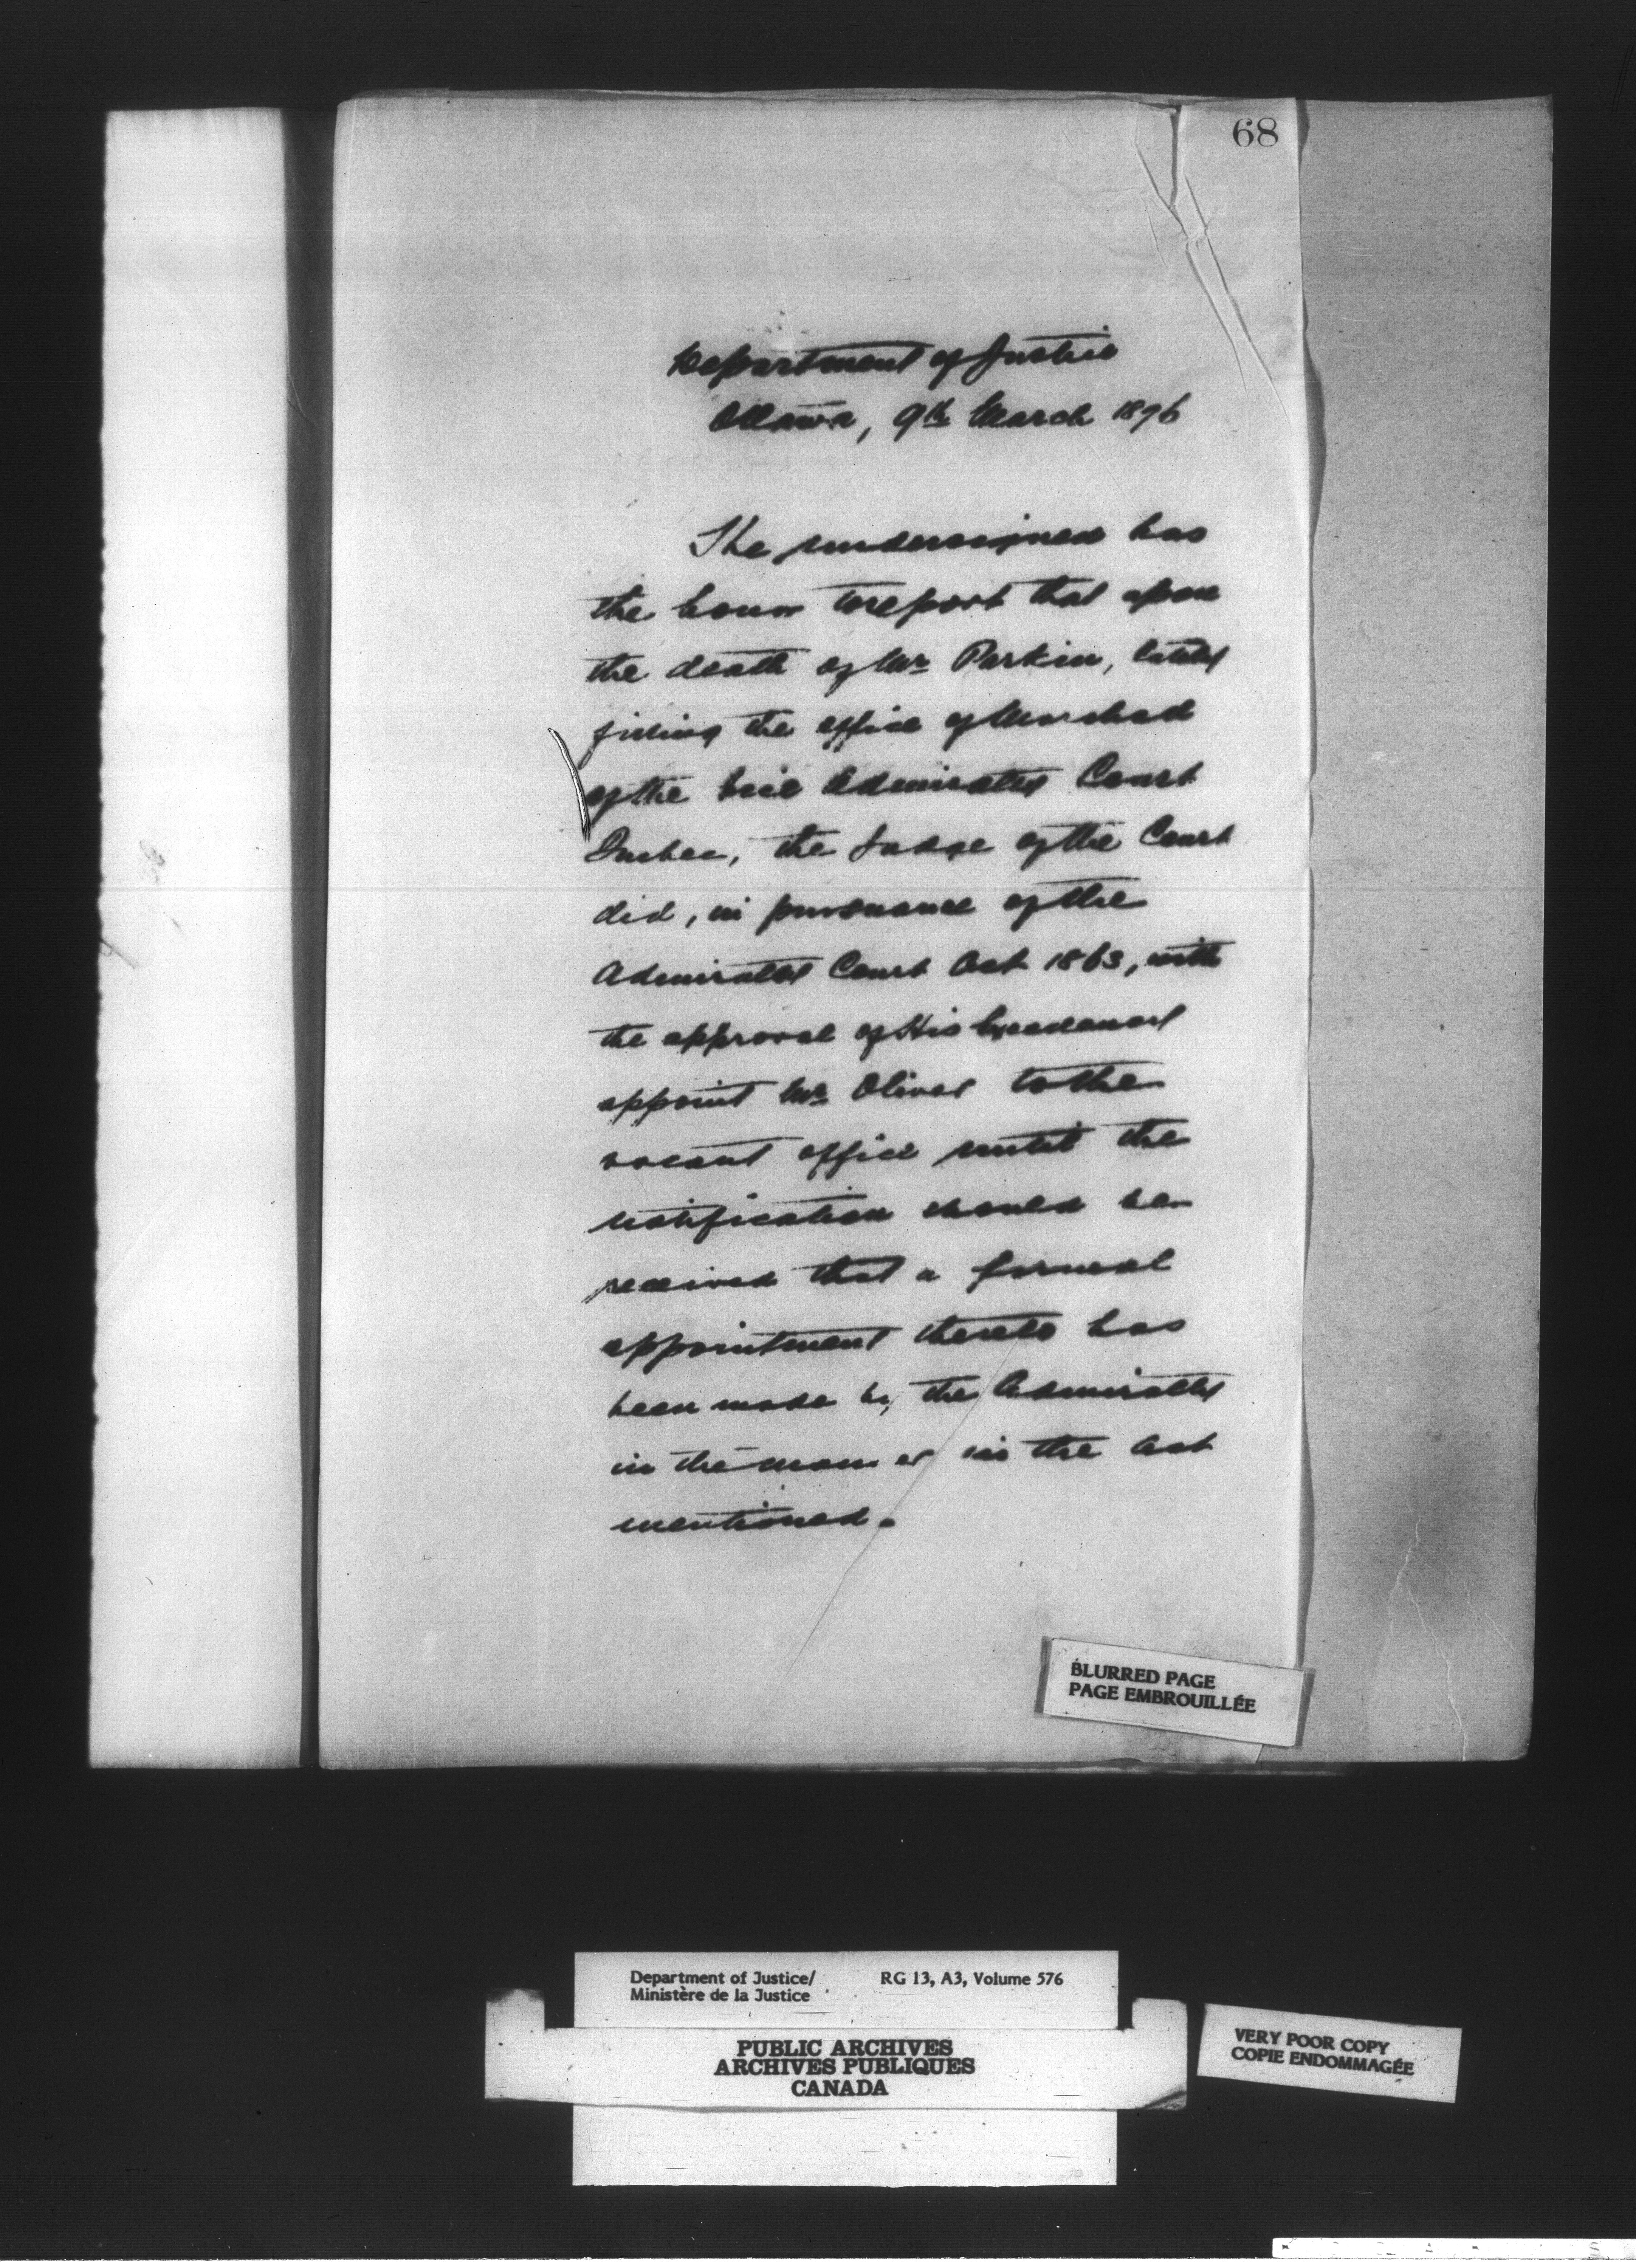 68
Department of Justice
Ottawa, 9th March 1896
The undersigned has
the honor to report that upon
the death of Mr Parkin, lately
filling the office of Marshal
of the Vice Admiralty Court
Quebec, the Judge of the Court
did, in pursuance of the
Admiralty Court Act 1863, with
the approval of His Excellency
appoint Mr Oliver to the
vacant office until the
notification should be
received that a formal
appointment thereto has
been made by the Admiralty
in the manner in the Act
mentioned.
BLURRED PAGE
PAGE EMBROUILLÉE
Department of Justice/ RG 13, A3, Volume 576
Ministère de la Justice
PUBLIC ARCHIVES
ARCHIVES PUBLIQUES
CANADA
VERY POOR COPY
COPIE ENDOMMAGÉE